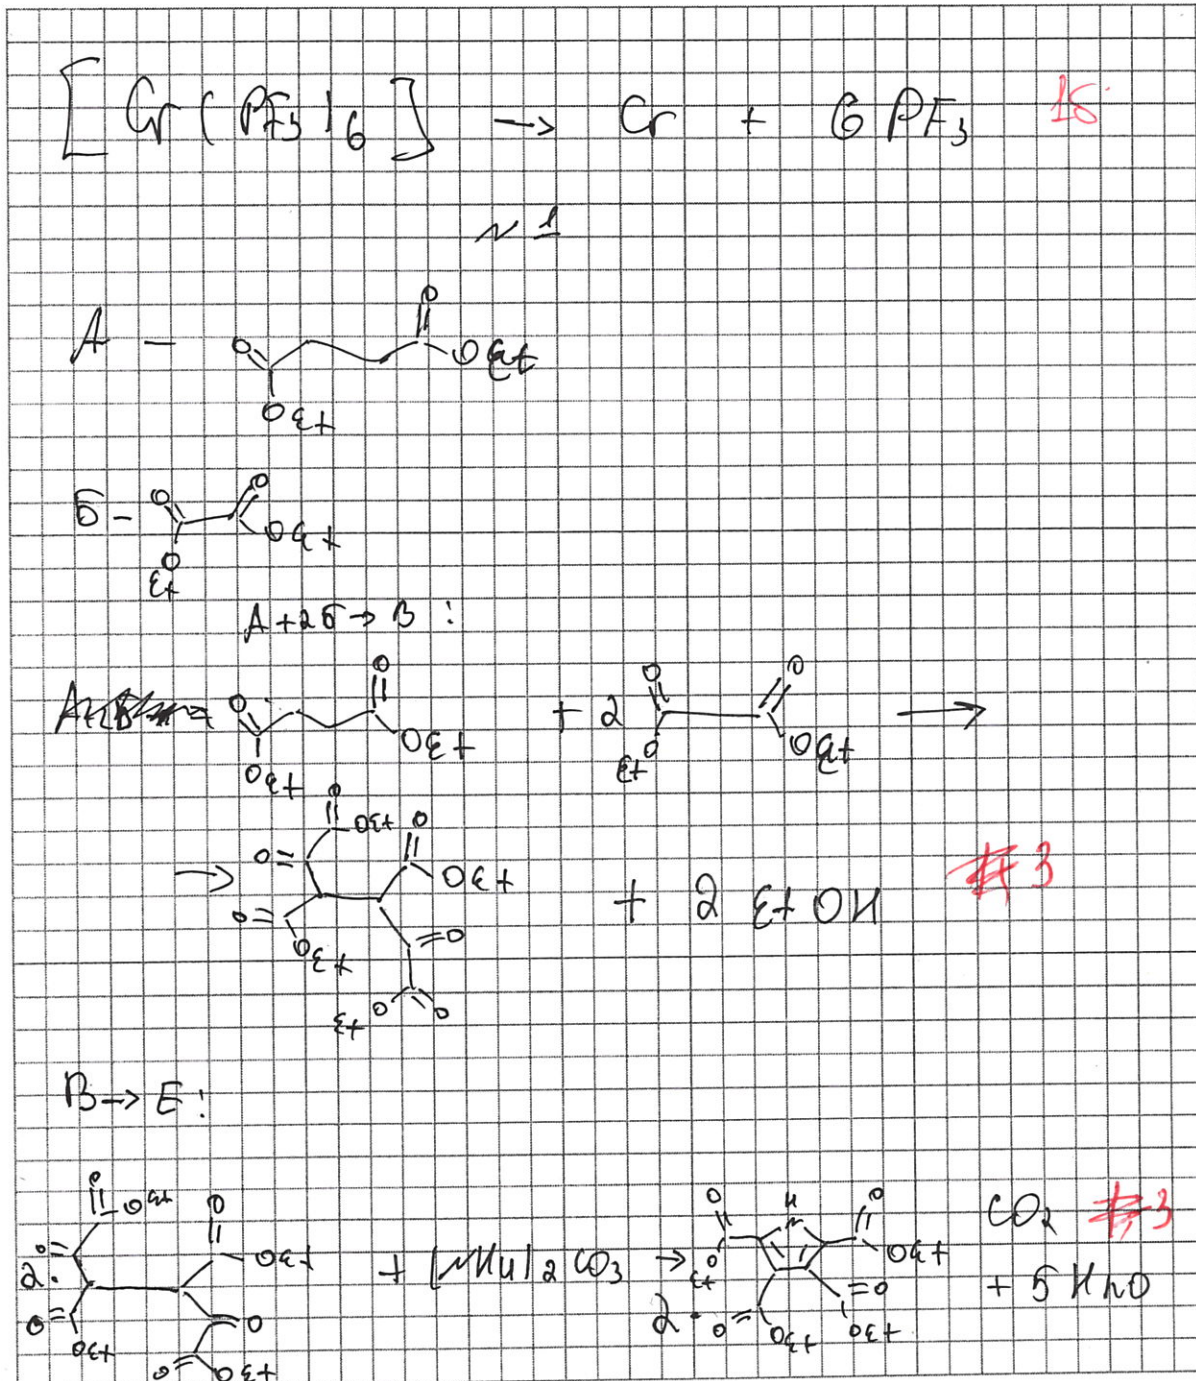 [Cr(PF3)6] → Cr + 6 PF3 1б.
№ 1
А –
O O OEt OEt
Б –
O O OEt OEt
А + 2Б → В :
O O OEt OEt + 2 O O OEt OEt →
→ O OEt O O OEt O OEt O O OEt + 2 EtOH 3
В → Е :
2 · O OEt O O OEt O OEt O O OEt + (NH4)2CO3 → 2 · O OEt H N O OEt O OEt O OEt CO2 3
+ 5 H2O